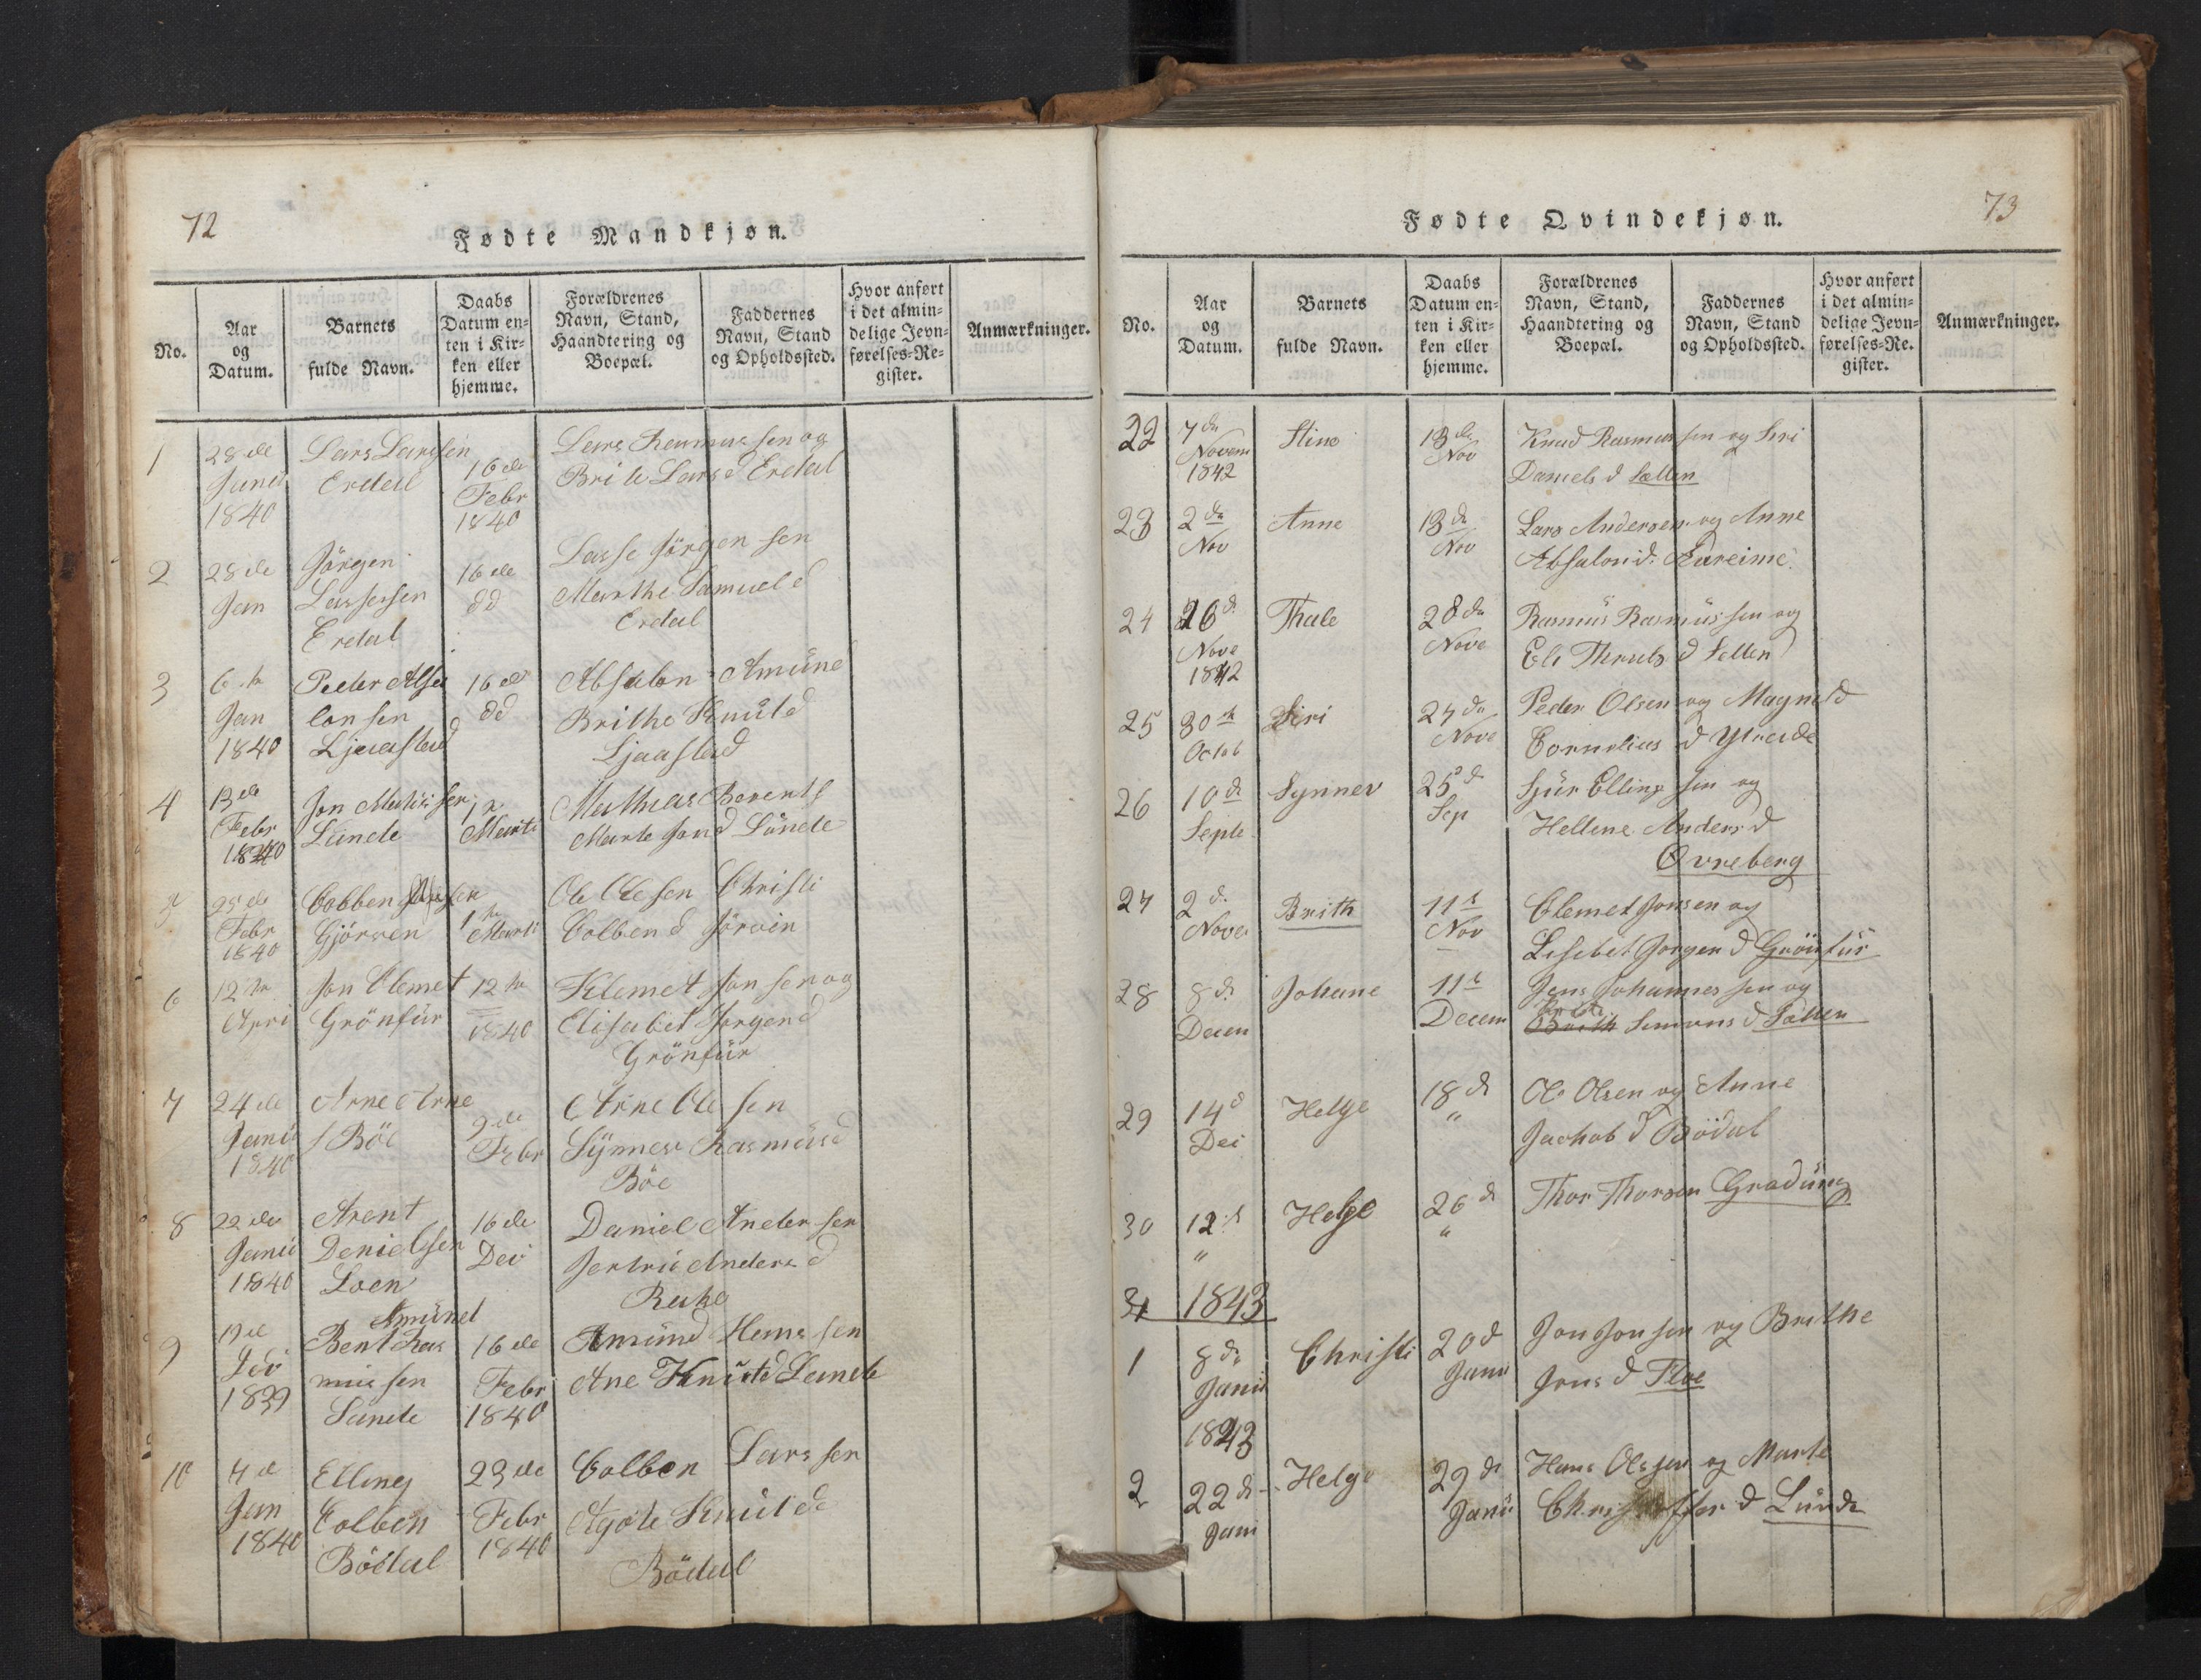 72
Fødte Mandkjøn.
No.
Aar
og
Datum.
Barnets
fulde Navn.
Daabs
Datum en-
ten i Kir-
ken eller
hjemme.
Forældrenes
Navn, Stand,
Haandtering og
Boepæl.
Faddernes
Navn, Stand
og Opholdssted.
Hvor anført
i det almin-
delige Jevn-
førelses-Re-
gister.
Anmærkninger.
1
28de
Janu
1840
Lars Larssen
Erdal
16de
Febr
1840
Lars Rasmussen og
Brite Larsd Erdal
2
28de
Jan
Jörgen
Lassesen
Erdal
16de
dd
Lasse Jörgensen
Marthe Samueld
Erdal
3
6te
Jan
1840
Peder Absa
lonsen
Ljaastad
16de
dd
Absalon Amünd
Brithe Knütd
Ljaastad
4
13de
Febr
1840
Jon Matisen
Lunde
1te
Marti
Mathias Berents
Marte Jond Lünde
5
25de
Febr
1840
Colben
Gjörven
1te
Marti
Ole Olesen Christi
Colbend Jörven
6
12te
Apri
Jon Clemet
Grönfür
12te
1840
Klemet Jonsen og
Elisabet Jörgend
Grönfür
7
24de
Janu
1840
Arne Arne
s Böe
9de
Febr
Arne Olesen
Synnev Rasmüsd
Böe
8
22de
Janu
1840
Arent
Denielsen
Loen
16de
Dei
Daniel Andersen
Jertrü Andersd
Rake
9
19de
1839
Amünd
Bent Ras
mussen
Lunde
16de
Febr
1840
Amünd Hanssen
Ane Knütd Lunde
10
4de
Jan
1840
Elling
Colben
Bödal
23de
Febr
1840
Colben Larssen
Agote Knütd
Bödal
73
Fødte Qvindekjøn.
No.
Aar
og
Datum.
Barnets
fulde Navn.
Daabs
Datum en-
ten i Kir-
ken eller
hjemme.
Forældrenes
Navn, Stand,
Haandtering og
Boepæl.
Faddernes
Navn, Stand
og Opholdssted.
Hvor anført
i det almin-
delige Jevn-
førelses-Re.
gister.
Anmærkninger.
22
7de
Novem
1842
Stine
13de
Nov
Knud Rasmussen og Siri
Daniels d Sætten
23
2de
Nov
Anne
13de
Nov
Lars Andersen og Anne
Absalon d. Aureime
24
26d
Nove
1842
Thale
28de
Nove
Rasmüs Rasmüssen og
Eli Thruls d Setten
25
30te
Octob
Siri
27de
Nove
Peder Olsen og Magnild
Cornelius d Ytreide
26
10de
Septe
Synnev
25de
Sep
Sjur Ellingsen og
Hellene Anders d
Övreberg
27
2d.
Nove
Brith
11te
Nov
Clemet Jonsen og
Lisebet Jorgen d Grönfür
28
8d.
Decem
Johane
11te
Decem
Jens Johannessen og
Brith Simons d Sætten
29
14d
Dei
Helge
18d
"
Ole Olsen og Anne
Jachob d Bödal
30
12te
"
Helge
26d
"
Thor Thorsen Gradüng
31
1843
1
8de
Janu
1843
Christi
20d
Janu
Jon Jonsen og Brithe
Jons d Floe
2
22de
Janu
Helge
29de
Janu
Hans Olssen og Marte
Christoffer d Lünde